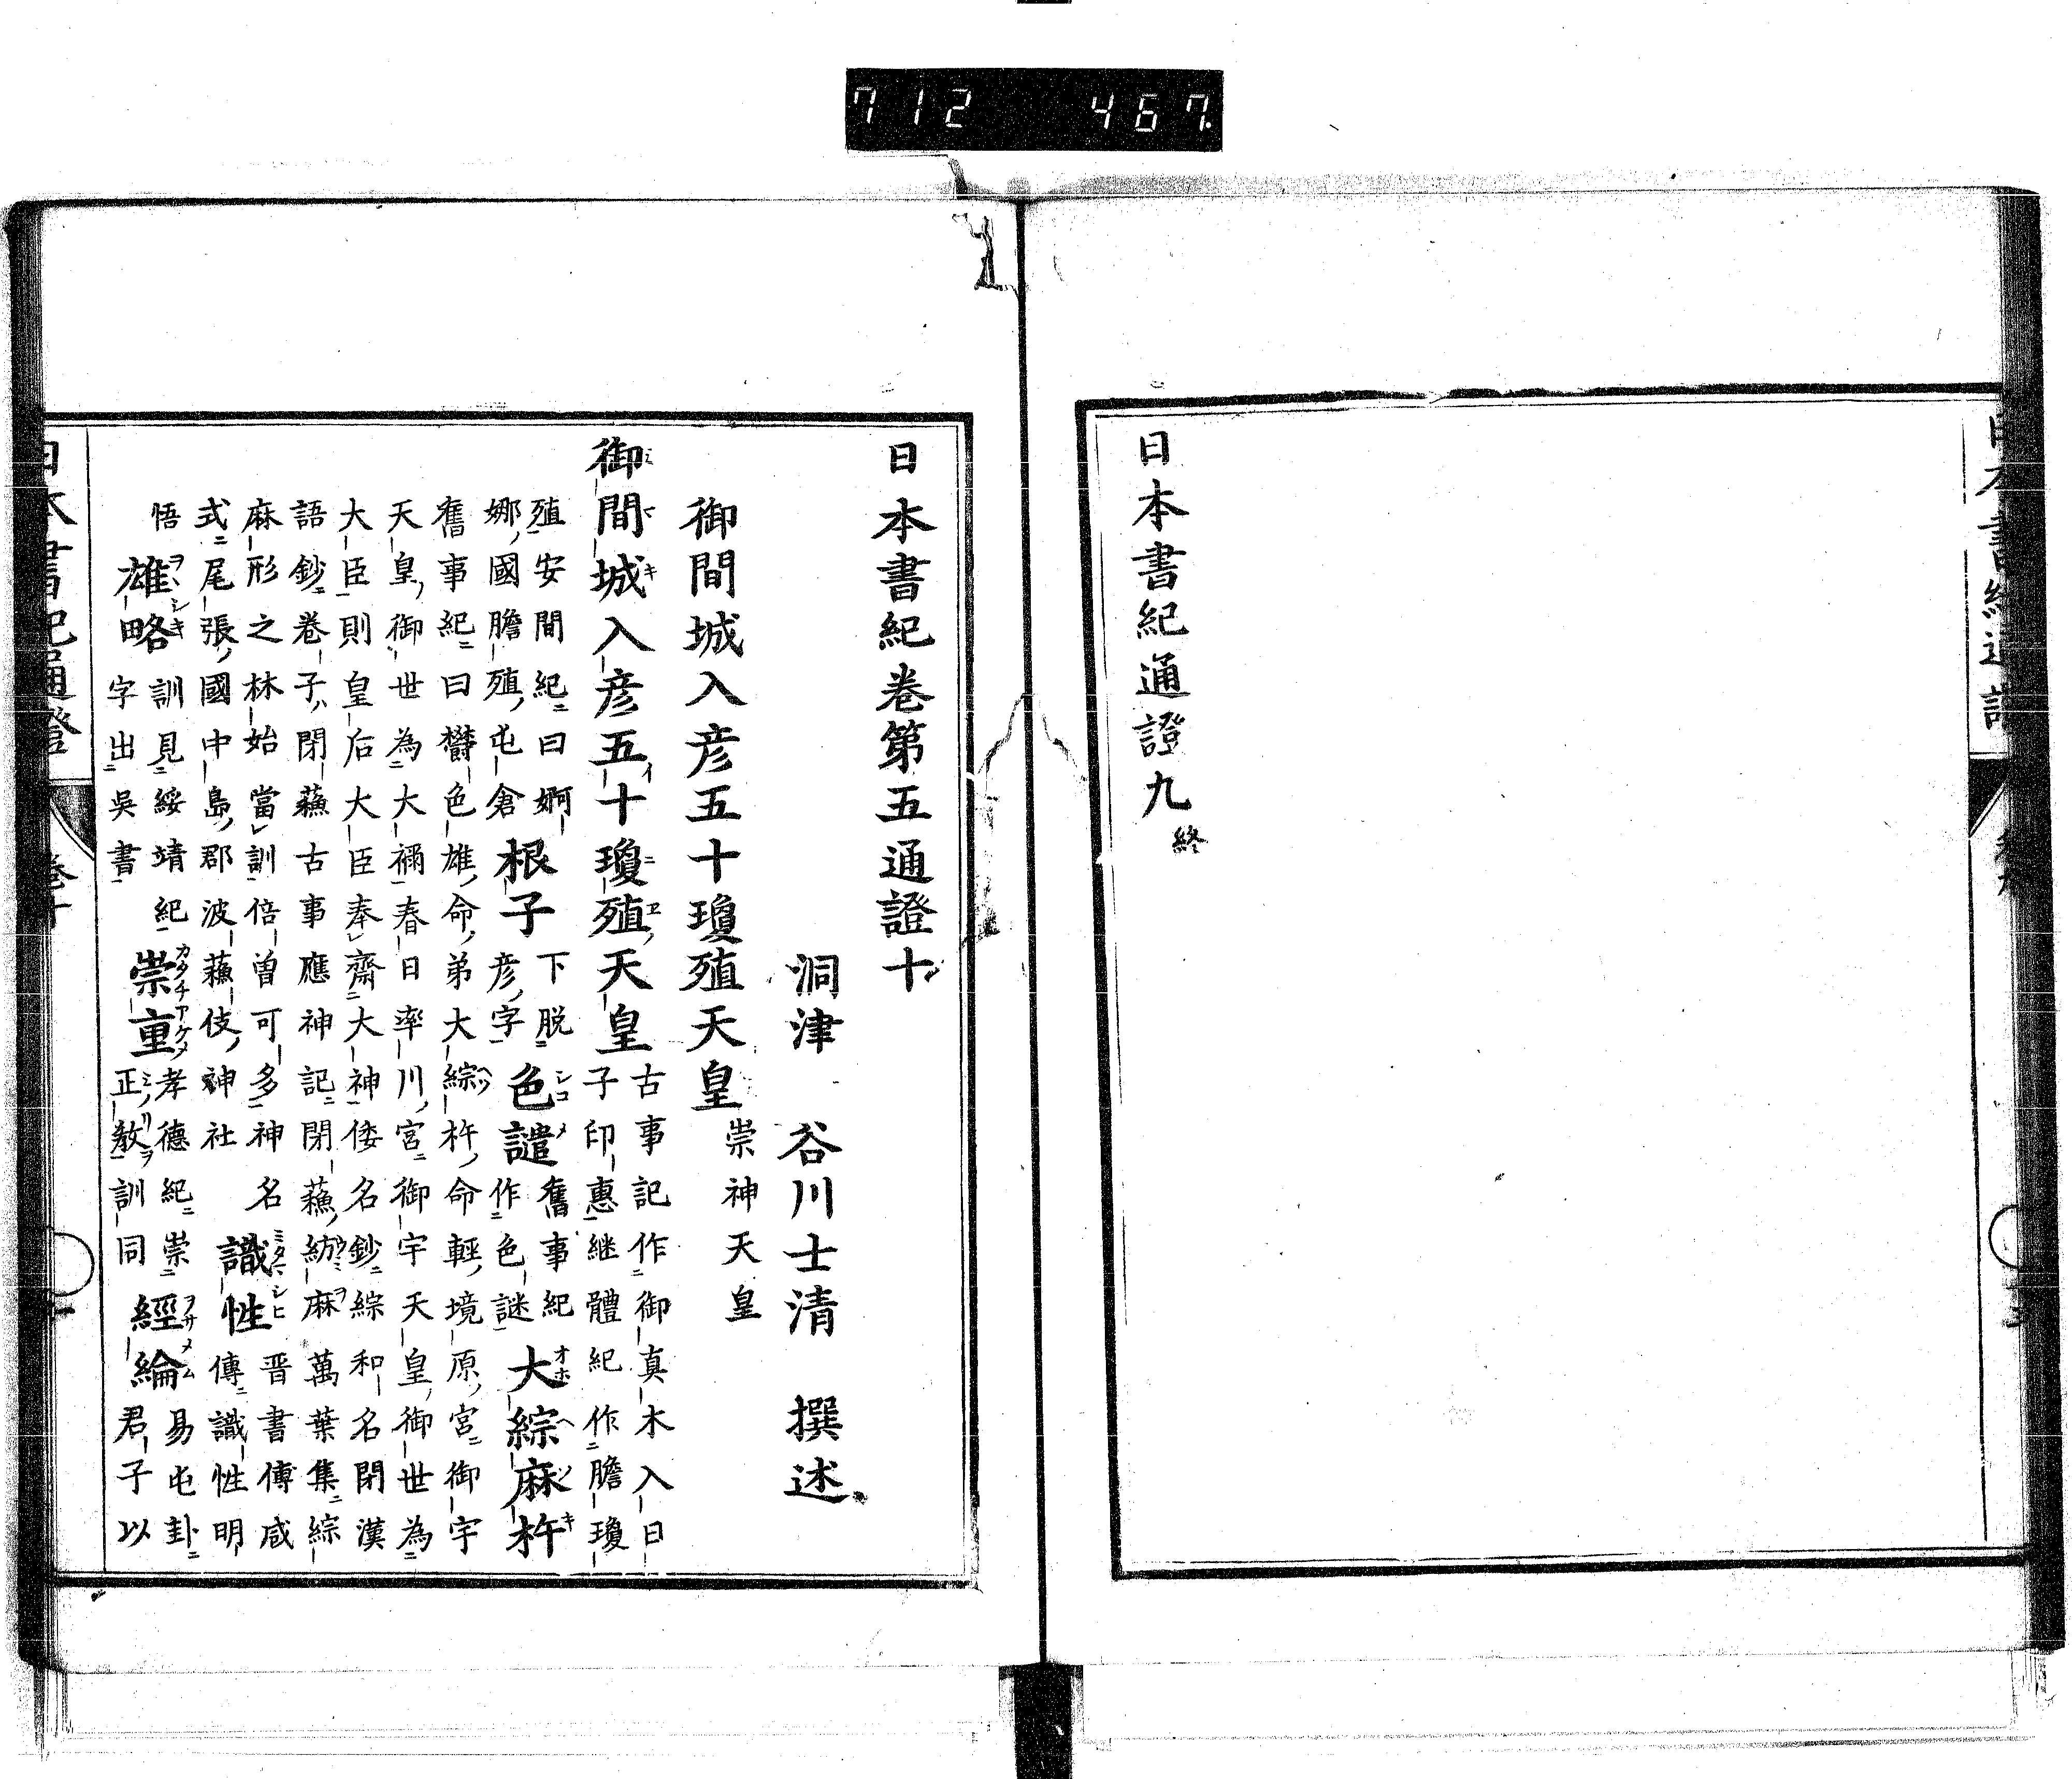 712 467
日本書紀通證九終
日本書紀卷第五通證十
洞津 谷川士清 撰述
御間城入彦五十瓊殖天皇 崇神天皇
御間城入彦五十瓊殖天皇 古事記作御真木入日
子印惠継體紀作膽瓊
殖安間紀曰婀
娜國膽殖屯倉 根子 下脱
彦字 色譴 舊事紀
作色謎 大綜麻杵
舊事紀曰欝色雄命弟大綜杵命輕境原宮御宇
天皇御世為大禰春日率川宮御宇天皇御世為
大臣則皇后大臣奉齋大神倭名鈔綜和名閇漢
語鈔卷子閇蘓古事應神記閇蘓紡麻萬葉集綜
麻形之林始當訓倍曽可多神名
式尾張國中島郡波蘓伎神社 識性 晋書傅咸
傳識性明
悟 雄略 訓見綏靖紀
字出吳書 崇重 孝德紀崇
正敎訓同 經綸 易屯卦
君子以
日本書紀通證 卷十 一